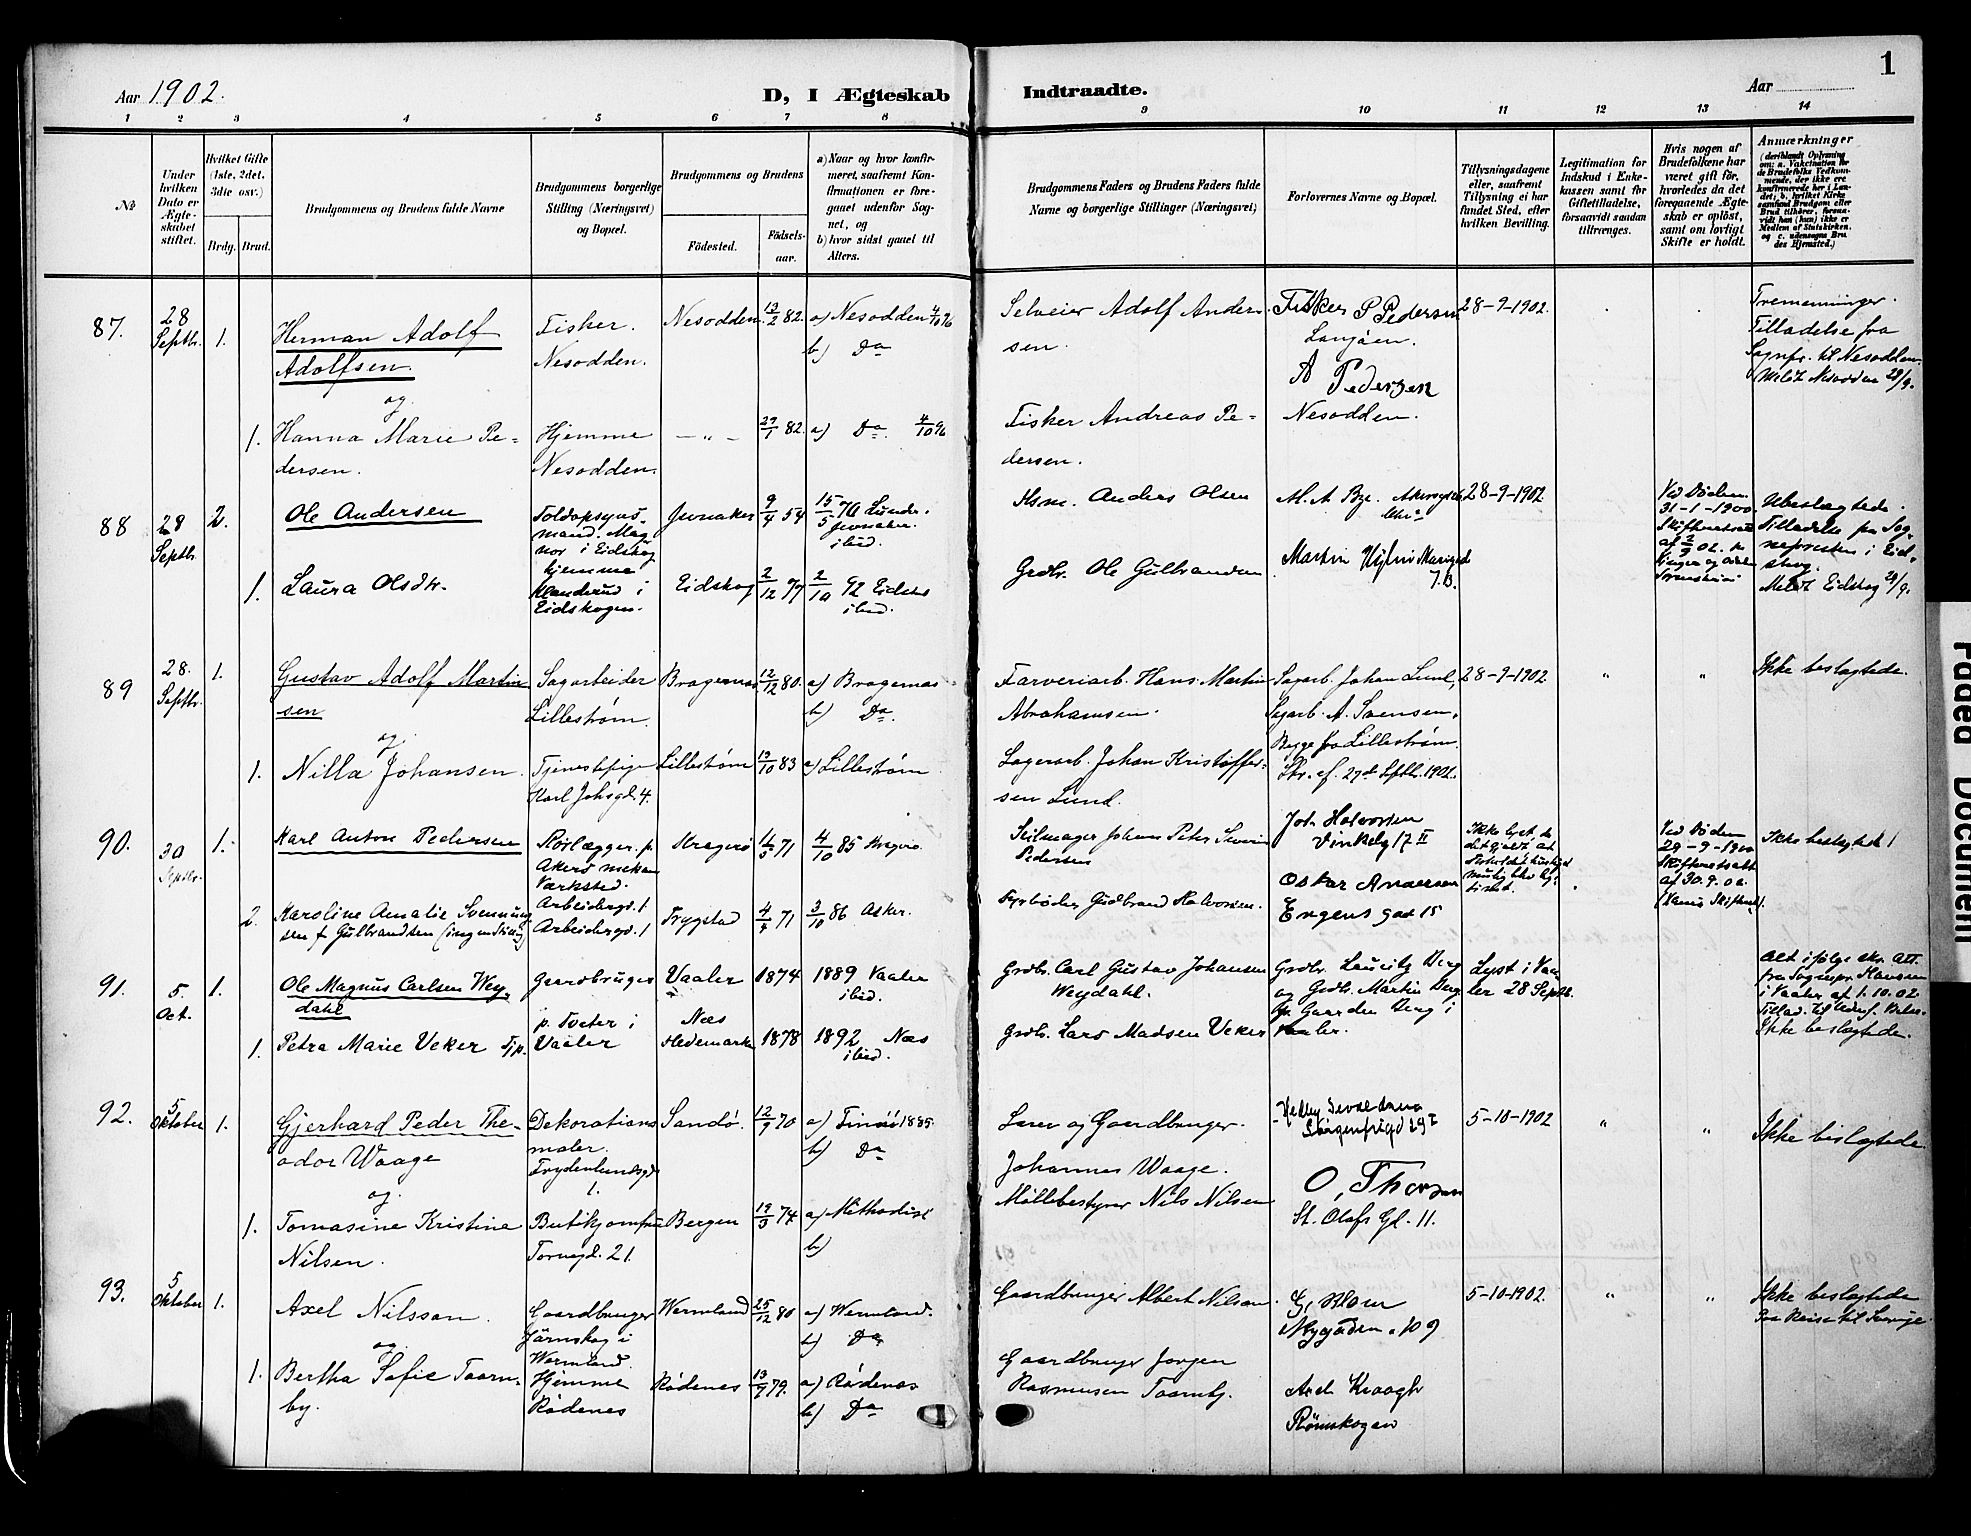 1
Aar 1902.
D, I Ægteskab Indtraadte.
Aar
1 2 3 4 5 6 7 8 9 10 11 12 13 14
№
Under hvilken Dato er Ægteskabet stiftet.
Hvilket Gifte (1ste, 2det, 3die osv.)
Brdg. Brud.
Brudgommens og Brudens fulde Navne
Brudgommens borgerlige Stilling (Næringsvei) og Bopæl.
Brudgommens og Brudens
Fødested.
Fødselsaar.
a) Naar og hvor konfirmeret, saafremt Konfirmationen er foregaaet udenfor Sognet, og
b) hvor sidst gaaet til Alters.
Brudgommens Faders og Brudens Faders fulde Navne og borgerlige Stillinger (Næringsvei)
Forlovernes Navne og Bopæl.
Tillysningsdagene eller, saafremt Tillysning ei har fundet Sted, efter hvilken Bevilling.
Legitimation for Indskud i Enkekassen samt for Giftetilladelse, forsaavidt saadan tiltrænges.
Hvis nogen af Brudefolkene har været gift før, hvorledes da det foregaaende Ægteskab er opløst, samt om lovligt Skifte er holdt.
Anmærkninger
(deriblandt Oplysning om: a. Vakcination for de Brudefolks Vedkommende, der ikke ere konfirmerede her i Landet; b. hvilket Kirkesamfund Brudgom eller Brud tilhører, forsaavidt han (hun) ikke er Medlem af Statskirken, og c. udensogns Brudes Hjemsted.)
87. 28 Septbr. 1. Herman Adolf Adolfsen
Fisker. Nesodden.
Nesodden. 13/2 82. a) Nesodden 4/10 96
b) Da
Selveier Adolf Andersen.
Fisker P Pedersen
Langøen.
A Pedersen
Nesodden.
28-9-1902.
Tremenninger.
Tilladelse fra
Sognpr. til Nesodden.
Meldt Nesodden 29/9.
og
1. Hanna Marie Pedersen.
Hjemme Nesodden.
- " - 27/1 82. a) Da 4/10 96
Fisker Andreas Pedersen.
88 28 Septbr. 2. Ole Andersen
Toldopsynsmand. Magnor i Eidskog
Jevnaker 9/4 54 15/5 70 Lunde, Jevnaker.
ibid.
Hsm. Anders Olsen
M. A. Bye.
28-9-1902.
Ved Døden
31-1-1900
Ubeslægtede.
Tilladelse fra Sognepresten i Eidskog.
Meldt Eidskog 29/9.
1. Laura Olsdtr.
hjemme
Eidskogen.
Eidskog 2/12 77 2/10 92 Eidskog
ibid.
Grdbr. Ole Gulbrandsen
Martin
89 28. Septbr. 1. Gustav Adolf Martinsen
Sagarbeider Lillestrøm.
Bragernes 12/12 80. a) Bragernes
b) Da
Farveriarb. Hans Martin Abrahamsen.
Sagarb. Johan Lund,
Sagarb. A. Svensen,
Begge fra Lillestrøm.
28-9-1902. " "
Ikke beslægtede.
og
1. Nilla Johansen.
Tjenestepige Karl Johsgd. 4.
Lillestrøm 19/10 83 a) Lillestrøm
Sagerarb. Johan Kristoffersen Lund.
90. 30 Septbr. 1. Karl Anton Pedersen
Rørlægger p. Akers mekan Værksted.
Arbeidergd. 1.
Kragerø 11/5 71 4/10 85 Kragerø
Seilmager Johans Peter Severin Pedersen
Joh. Halvorsen
Vinkelg 17 II
Oskar Andersen
Engens gad 15
Ved Døden
29-9-1900
Skifteretsatt af 30.9.02.
Ikke beslægtede!
2. Karoline Amalie Svennungsen f. Gulbrandsen
Arbeidergd. 1
Trygstad 4/4 71 3/10 86 Asker.
Fyrbøder Gudbrand Halvorsen.
91. 5. Oct. 1. Ole Magnus Carlsen Weydahl
Gaardbruger
Vaaler 1874 1889 Vaaler
ibid.
Grdbr. Carl Gustav Johansen Weydahl.
Grdbr. Lauritz Berg og Grdbr. Martin Berg
Gaarden Berg i Vaaler.
Lyst i Vaaler 28 Septbr.
Alt ifølge skr. Att. fra Sognepr. Hansen i Vaaler af 1.10.02.
Ikke beslægtede.
1. Petra Marie Veker
p. Tveter i Vaaler
Næs Hedemarken 1878 1892 Næs
ibid.
Grdbr. Lars Madsen Veker
92. 5 Oktober 1. Gjerhard Peder Theodor Waage
Dekorationsmaler.
Frydenlundsgd 1.
Sandø. 12/9 70 a) 1885.
b) Da
Lærer og Gaardbruger.
Johannes Waage.
O. Thorsen
St. Olafs Gd. 11.
5-10-1902 " "
Ikke beslægtede.
og
1. Tomasine Kristine Nilsen.
Butikjomfru
Torvegd. 21.
Bergen 19/3 74 a) Methodist
b)
Møllebestyrer Nils Nilsen
93. 5 Oktober 1. Axel Nilsson.
Gaardbruger Järnskog i Wermland.
Wermland 25/12 80 a) Wermland.
b) Da
Gaardbruger Albert Nilson.
Nygaden 109
5-10-1902. " "
Ikke beslægtede
Paa Reise til Sverige.
og
1. Bertha Sofie Taarnby.
Hjemme Rødenes
Rødenes 13/9 79. a) Rødenes
b) Da
Gaardbruger Jørgen Rasmusen Taarnby.
Axel Kraagh
Rømskogen
Faded Document